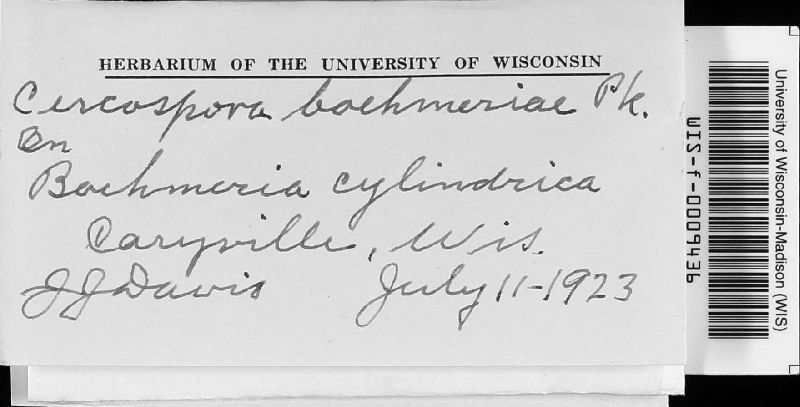 HERBARIUM OF THE UNIVERSITY OF WISCONSIN
Cercospora boehmeriae Pk.
On
Boehmeria cylindrica
Caryville, Wis.
J J Davis July 11-1923
WIS-f-0009436
University of Wisconsin-Madison (WIS)